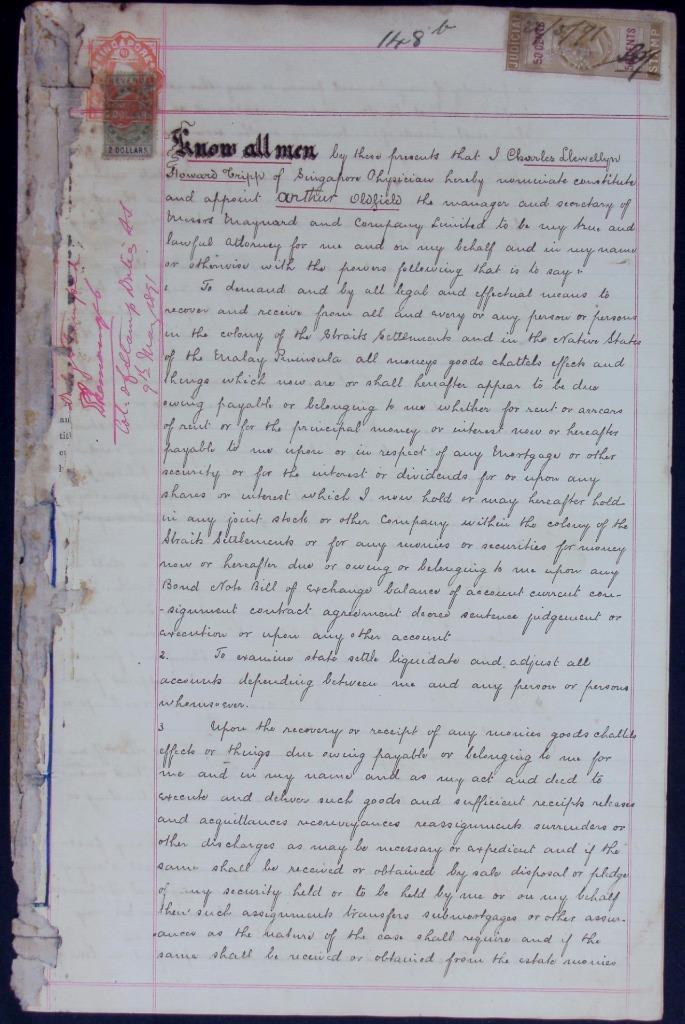 148 b
JUDICIAL
50 CENTS
STAMP
SINGAPORE
REVENUE
2 DOLLARS
Know all men by these presents that I Charles Llewellyn
Howard Tripp of Singapore Physician hereby nominate constitute
and appoint Arthur Oldfield the manager and secretary of
Messrs Maynard and Company Limited to be my true and
lawful attorney for me and on my behalf and in my name
or otherwise with the powers following that is to say:-
1 To demand and by all legal and effectual means to
recover and receive from all and every or any person or persons
in the colony of the Straits Settlements and in the Native States
of the Malay Peninsula all moneys goods chattels effects and
things which now are or shall hereafter appear to be due
owing payable or belonging to me whether for rent or arrears
of rent or for the principal money or interest now or hereafter
payable to me upon or in respect of any Mortgage or other
security or for the interest or dividends for or upon any
shares or interest which I now hold or may hereafter hold
in any joint stock or other Company within the colony of the
Straits Settlements or for any monies or securities for money
now or hereafter due or owing or belonging to me upon any
Bond Note Bill of Exchange balance of account current con-
-signment contract agreement decree sentence judgement or
execution or upon any other account
2. To examine state settle liquidate and adjust all
accounts depending between me and any person or persons
whomsoever.
3 Upon the recovery or receipt of any monies goods chattels
effects or things due owing payable or belonging to me for
me and in my name and as my act and deed to
execute and deliver such goods and sufficient receipts releases
and acquittances reconveyances reassignments surrenders or
other discharges as may be necessary or expedient and if the
same shall be received or obtained by sale disposal or pledge
of my security held or to be held by me or on my behalf
then such assignments transfers submortgages or other assur-
ances as the nature of the case shall require and if the
same shall be received or obtained from the estate monies
Col. of Stamp Duties SS
9th May 1891